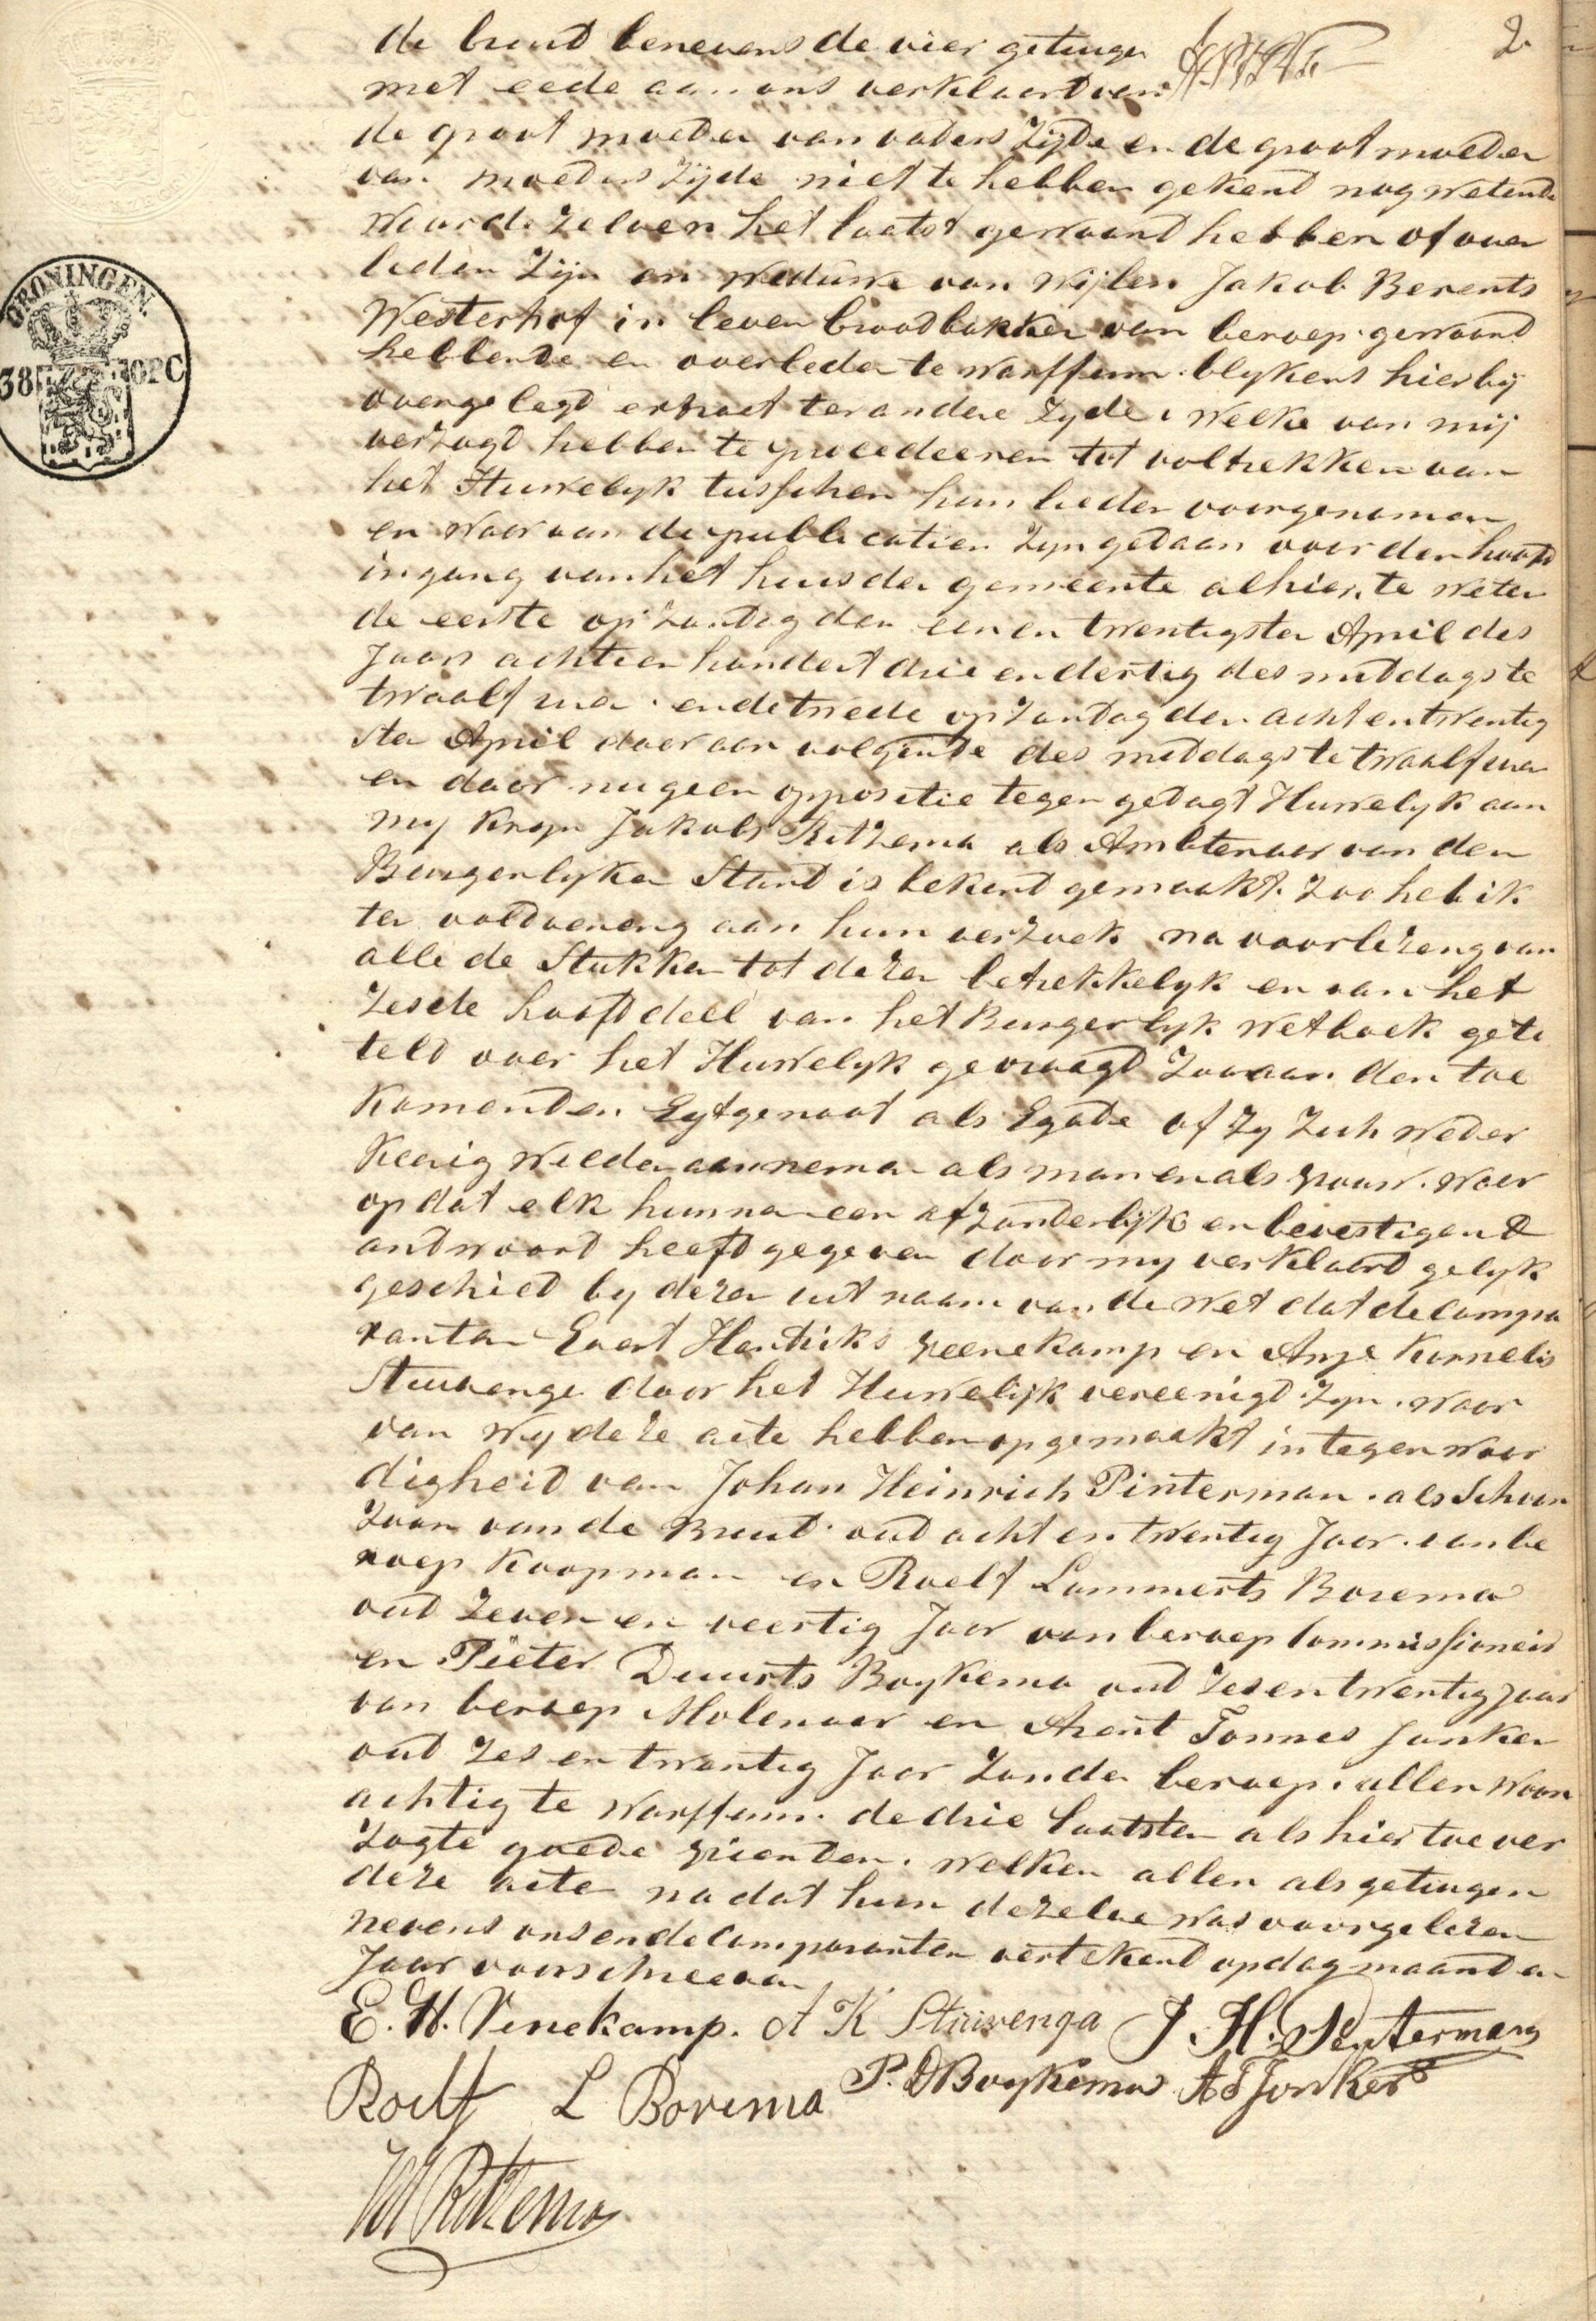 2
de bruid benevens de vier getuigen
met eede aan ons verklaard van
de groot moeder van vaders Zijde en de groot moeder
van moeders Zijde niet te hebben gekend nog wetende
waar dezelven het laatst gewoond hebben of over
leden Zijn en Weduwe van wijlen Jakob Berents
Westerhof in leven broodbakker van beroep gewoond
hebbende en overleden te Warffum blykens hierbij
GRONINGEN.
38 OPC
overgelegd extract ter andere Zyde, Welke van mij
verzogt hebben te procedeeren tot voltrekken van
het Huwelyk tusschen hun lieden voorgenomen
en Waarvan de publicatien Zyn gedaan voor den hoofd
ingang van het huis der gemeente alhier, te weten
de eerste op Zondag den een en twentigsten April des
Jaars achtien hondert drie en dertig des middags te
twaalf uur en de twede op Zondag den acht en twentig
sten April daar aan volgende des middags te twaalf uur
en daar nu geen oppositie tegen gedagt Huwelyk aan
my Kryn Jakobs Ritzema als Ambtenaar van den
Burgerlyken Stand is bekend gemaakt. Zoo heb ik
ter voldoening aan hun verzoek na voorlezing van
alle de Stukken tot deze betrekkelyk en van het
Zesde hoofd deel van het Burgerlyk Wetboek geti
teld over het Huwelyk gevraagd Zoo aan den toe
Komenden Egtgenoot als Egade of Zy Zich weder
Keerig wilden aannemen als man en als vrouw. Waar
op dat elk hunner een afzonderlijk en bevestigend
andwoord heeft gegeven door my verklaard gelyk
geschied by deze uit naam van de Wet dat de compa
ranten Evert Hendriks Veenekamp en Anje Kornelis
Stuivenga door het Huwelijk vereenigd Zyn. Waar
van Wy deze acte hebben opgemaakt in tegenwoor
digheid van Johan Heinrich Pinterman als Schoon
Zoon van de Bruid oud acht en twentig Jaar van be
roep Koopman en Roelf Lammerts Borema
oud Zeven en veertig Jaar van beroep Commissionair
en Pieter Duurts Boykema oud Zes en twentig Jaar
van beroep Molenaar en Arent Tonnes Jonker
oud Zes en twentig Jaar Zonder beroep. allen Woon
achtig te Warffum. de drie laatsten als hier toe ver
Zogte goede vrienden. Welken allen als getuigen
deze acte na dat hun dezelve was voorgelezen
nevens ons en de Comparanten vertekend op dag maand en
Jaar voorschreven
E. H. Venekamp. A K Stuivenga J. H. Penterman
Roelf L Borema P. D Boykema A T Jonker
KJ Ritzema